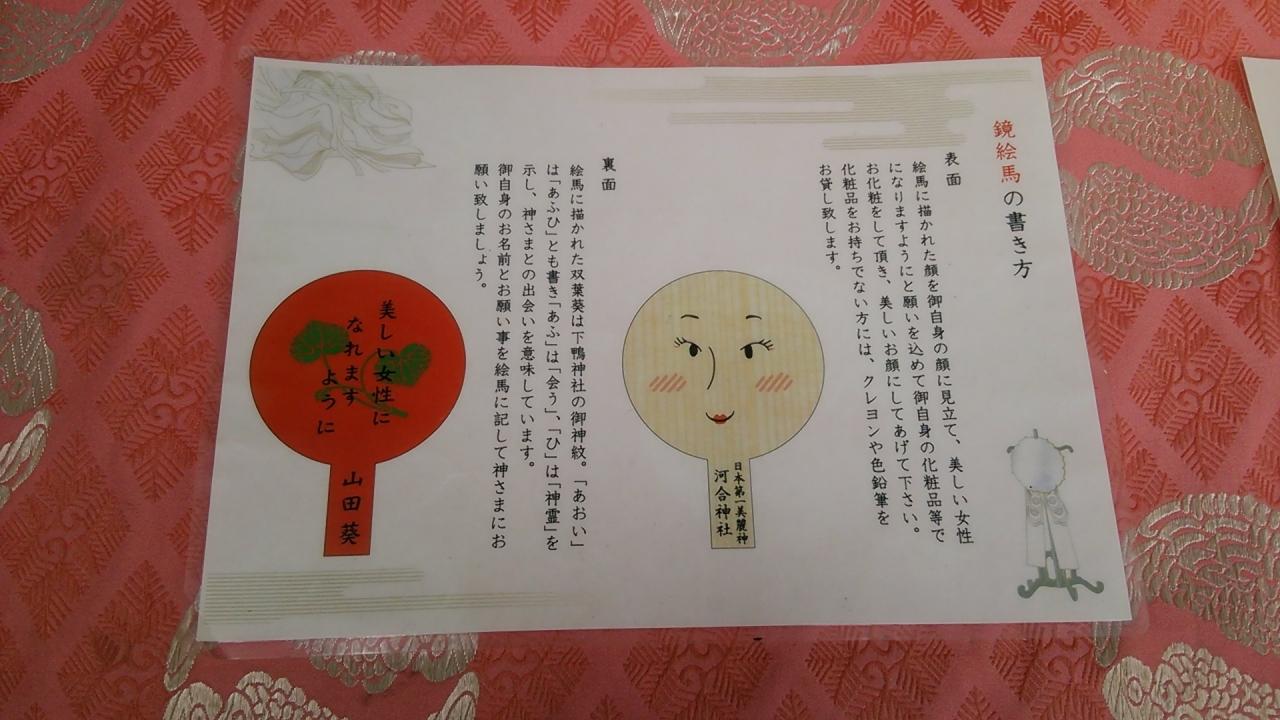 鏡絵馬の書き方
表面
絵馬に描かれた顔を御自身の顔に見立て、美しい女性
になりますようにと願いを込めて御自身の化粧品等で
お化粧をして頂き、美しいお顔にしてあげて下さい。
化粧品をお持ちでない方には、クレヨンや色鉛筆を
お貸し致します。
日本第一美麗神
河合神社
裏面
絵馬に描かれた双葉葵は下鴨神社の御神紋。「あおい」
は「あふひ」とも書き「あふ」は「会う」、「ひ」は「神霊」を
示し、神さまとの出会いを意味しています。
御自身のお名前とお願い事を絵馬に記して神さまにお
願い致しましょう。
美しい女性に
なれます
ように
山田葵